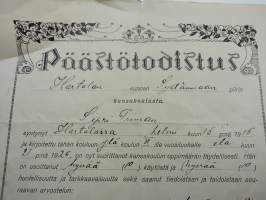 Päästötodistus
Hartolan kunnan Sydänmaan piirin
kansakoulusta.
Seppo
syntynyt Hartolassa helmi kuun 15 p:nä 1916
ja kirjoitettu tähän kouluun yllä kuun
p:nä 1926, on nyt suorittanut kansakoulun oppimäärän täydellisesti. Hän
on osoittanut hyvää käytöstä ja hyvää
huolellisuutta ja tarkkaavaisuutta sekä saanut tiedoistaan ja taidoistaan seu-
raavan arvostelun: